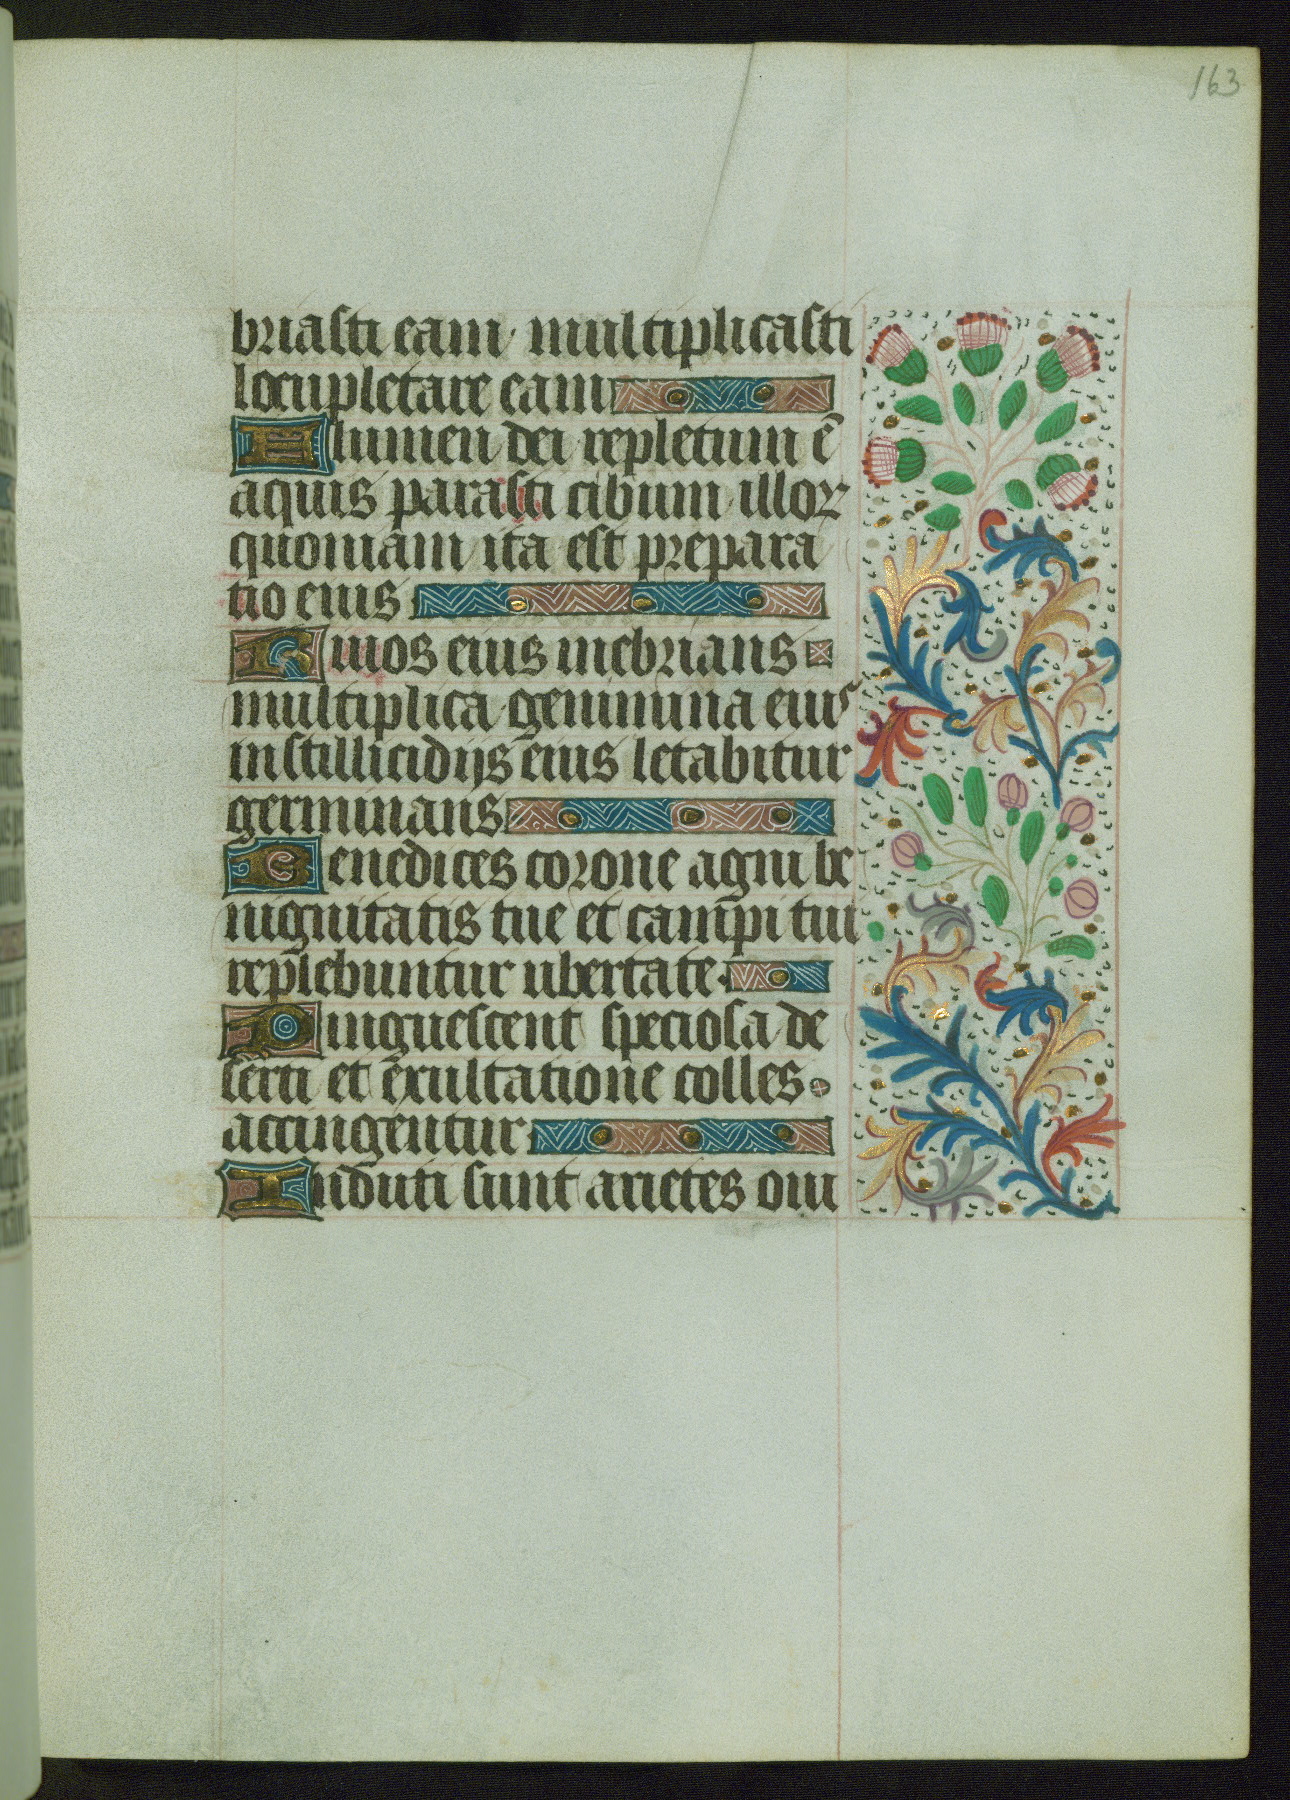 163
briasti eam multiplicasti
locupletare eam
Flumen dei repletum ē
aquis parasti cibum illoꝝ
quoniam ita est prepara
tio eius
Riuos eius inebrians
multiplica genimina eius
in stillicidijs eius letabitur
germinans
Benedices corone agni be
nignitatis tue et campi tui
replebuntur ubertate
Pinguescent speciosa de
serti et exultatione colles
accingentur
Induti sunt arietes oui